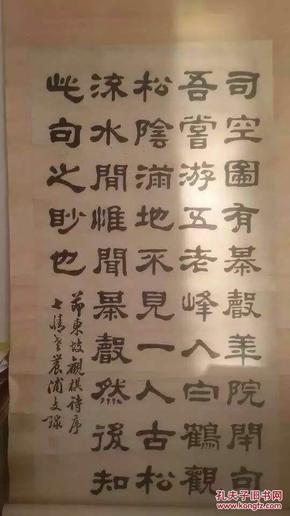 司空圖有棊聲華院閉句
吾嘗游五老峰入白鶴觀
松陰滿地不見一人古松
流水間惟聞棊聲然後知
此句之眇也
節東坡觀棋詩序
農浦文
孔夫子旧书网